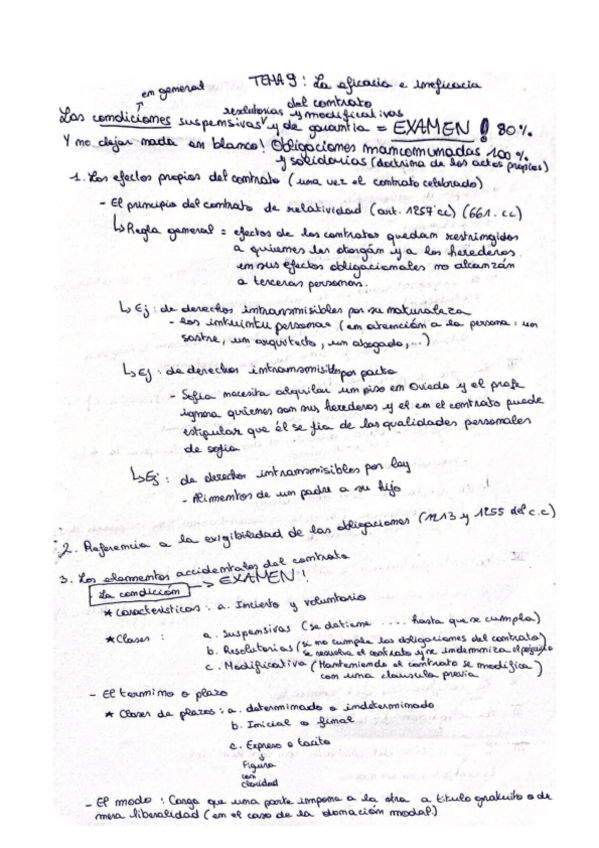 TEMA 9 : La eficacia e ineficacia
en general
del contrato
resolutorias y modificativas
Las condiciones suspensivas y de garantia = EXAMEN ! 80%
Y no dejar nada en blanco! Obligaciones mancomunadas 100%
y solidarias (doctrina de los actos propios)
1. Los efectos propios del contrato (una vez el contrato celebrado)
- El principio del contrato de relatividad (art. 1257 cc) (661. cc)
↳ Regla general = efectos de los contratos quedan restringidos
a quienes los otorgán y a los herederos
en sus efectos obligacionales no alcanzán
a terceras personas.
↳ Ej : de derechos intransmisibles por su naturaleza
- los intuintu personae (en atención a la persona : un
sastre, un arquitecto, un abogado, ...)
↳ Ej : de derechos intransmisibles por pacto
- Sofia necesita alquilar un piso en Oviedo y el profe
ignora quienes son sus herederos y el en el contrato puede
estipular que él se fia de las qualidades personales
de sofia
↳ Ej : de derechos intransmisibles por ley
- Alimentos de un padre a su hijo
2. Referencia a la exigibilidad de las obligaciones (1213 y 1255 del c.c)
3. Los elementos accidentales del contrato
La condición → EXAMEN !
* Caracteristicas : a. Incierto y voluntario
* Clases : a. Suspensivas (se detiene .... hasta que se cumpla)
b. Resolutorias (si no cumple las obligaciones del contrato)
se resuelve el contrato y se indemniza el perjuicio
c. Modificativa (Manteniendo el contrato se modifica)
con una clausula previa
- El termino o plazo
* Clases de plazos : a. determinado o indeterminado
b. Inicial o final
c. Expreso o tacito
Figura
con
claridad
- El modo : Carga que una parte impone a la otra a titulo gratuito o de
mera liberalidad (en el caso de la donación modal)